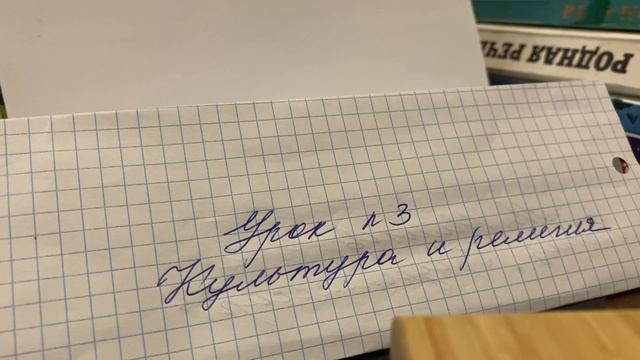 РОДНАЯ РЕЧЬ
Урок п 3
Культура и религия